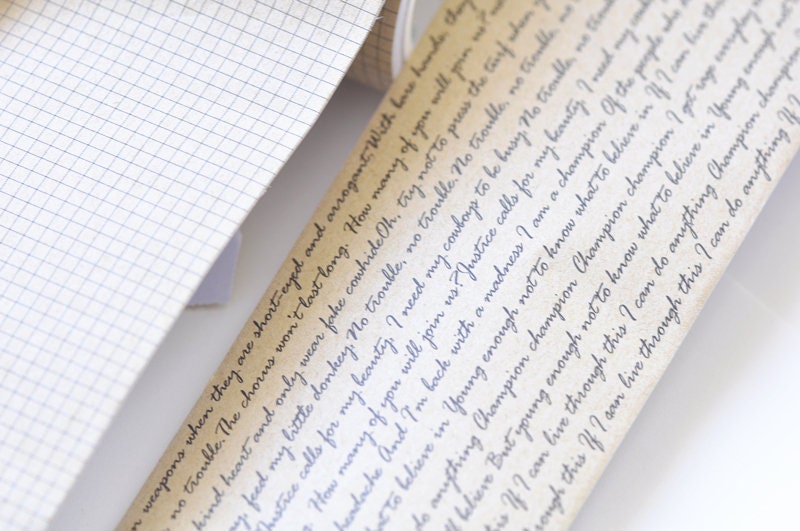 weapons when they are short-eyed and arrogant, With bare hands, they
no trouble. The chorus won't last long. How many of you will join us
kind heart and only wear fake cowhide Oh, try not to press the turf when
feed my little donkey. No trouble, no trouble. No trouble, no trouble, no trouble, no
Justice calls for my beauty, I need my cowboys to be busy No trouble, no trouble
How many of you will join us? Justice calls for my beauty. I need my
headache And I'm back with a madness I am a champion Of the people who
not to believe in Young enough not to know what to believe in If I can live
do anything Champion champion Champion champion I got rage every day
I'll believe But young enough not to know what to believe in Young enough not
this If I can live through this I can do anything Champion champion
through this If I can live through this I can do anything If I